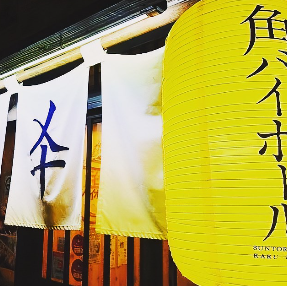 角ハイボール
SUNTOR
KAKU